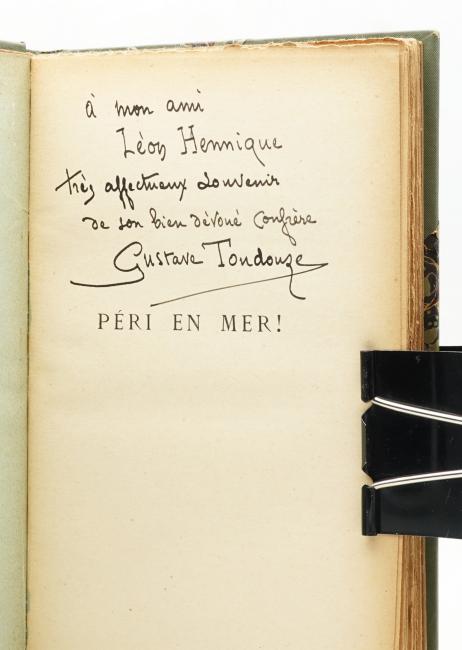 à mon ami
Léon Hennique
très affectueux souvenir
de son bien dévoué confrère
Gustave Toudouze
PÉRI EN MER!